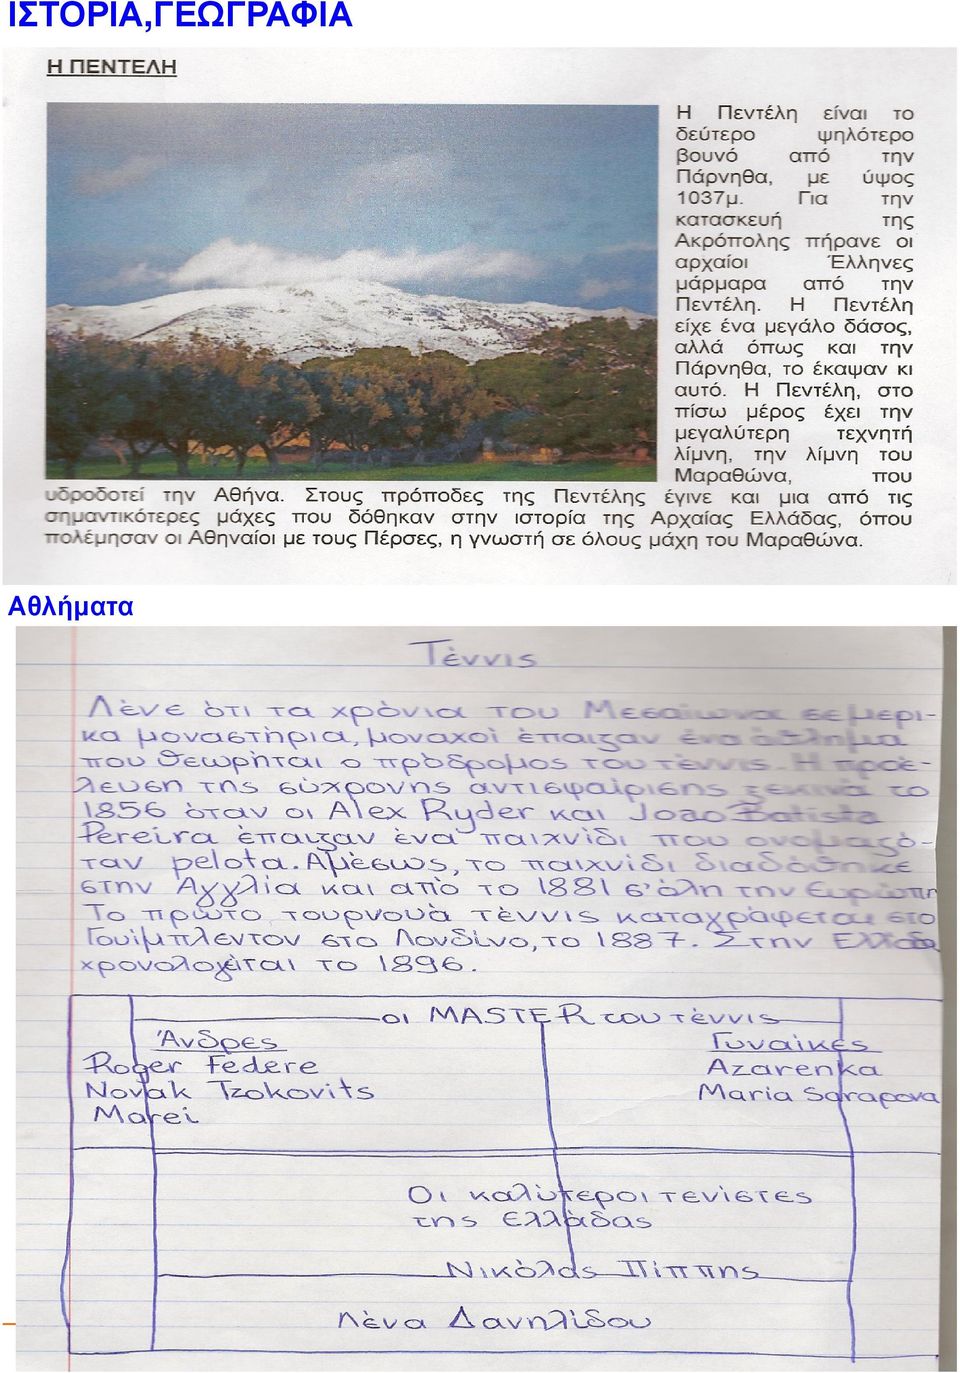 ΙΣΤΟΡΙΑ,ΓΕΩΓΡΑΦΙΑ
Η ΠΕΝΤΕΛΗ
Η Πεντέλη είναι το
δεύτερο ψηλότερο
βουνό από την
Πάρνηθα, με ύψος
1037μ. Για την
κατασκευή της
Ακρόπολης πήρανε οι
αρχαίοι Έλληνες
μάρμαρα από την
Πεντέλη. Η Πεντέλη
είχε ένα μεγάλο δάσος,
αλλά όπως και την
Πάρνηθα, το έκαψαν κι
αυτό. Η Πεντέλη, στο
πίσω μέρος έχει την
μεγαλύτερη τεχνητή
λίμνη, την λίμνη του
Μαραθώνα, που
υδροδοτεί την Αθήνα. Στους πρόποδες της Πεντέλης έγινε και μια από τις
σημαντικότερες μάχες που δόθηκαν στην ιστορία της Αρχαίας Ελλάδας, όπου
πολέμησαν οι Αθηναίοι με τους Πέρσες, η γνωστή σε όλους μάχη του Μαραθώνα.
Αθλήματα
Τέννις
Λένε ότι τα χρόνια του Μεσαίωνα σε μερι-
κα μοναστήρια, μοναχοί έπαιζαν ένα άθλημα
που θεωρήται ο πρόδρομος του τέννις. Η προέ-
λευση της σύχρονης αντισφαίρισης ξεκινά το
1856 όταν οι Alex Ryder και Joao Batista
Pereira έπαιζαν ένα παιχνίδι που ονομαζό-
ταν pelota. Αμέσως, το παιχνίδι διαδόθηκε
στην Αγγλία και από το 1881 σ' όλη την Ευρώπη
Το πρώτο τουρνουά τέννις καταγράφεται στο
Γουίμπλεντον στο Λονδίνο, το 1887. Στην Ελλάδα
χρονολογείται το 1896.
οι MASTER του τέννις
Άνδρες Γυναίκες
Roger Federe Azarenka
Novak Tzokovits Maria Sarapova
Marei
Οι καλύτεροι τενίστες
της Ελλάδας
Νικόλας Πίππης
Λένα Δανηλίδου